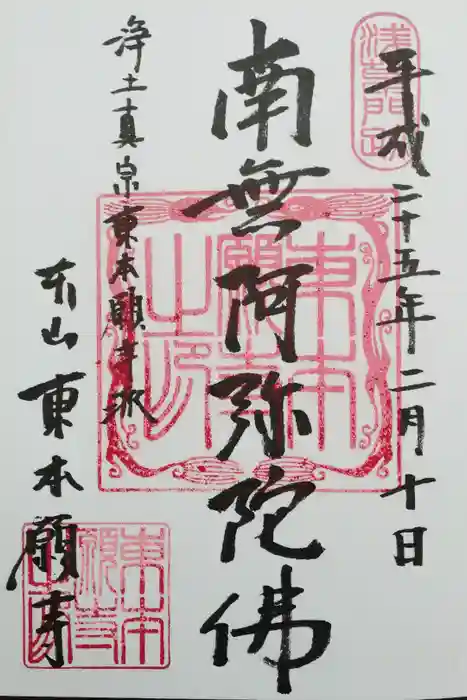 平成二十五年二月十日
南無阿弥陀佛
浄土真宗東本願寺派
本山東本願寺
東本願寺之印
東本願寺